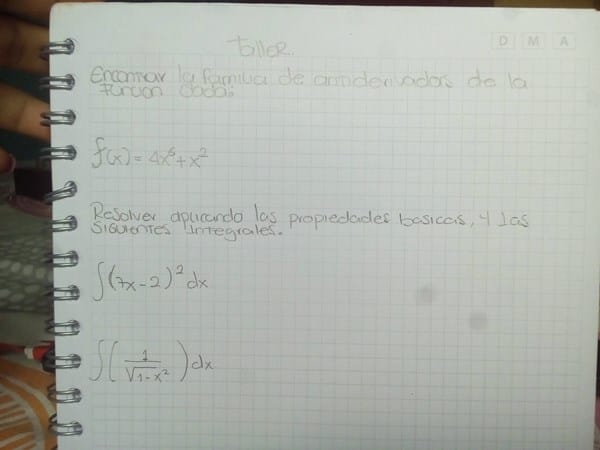 Taller.
D M A
Encontrar la familia de antiderivadas de la
función dada:
f(x) = 4x⁶ + x²
Resolver aplicando las propiedades basicas, y las
siguientes integrales.
∫(7x-2)² dx
∫(1/√1-x²) dx